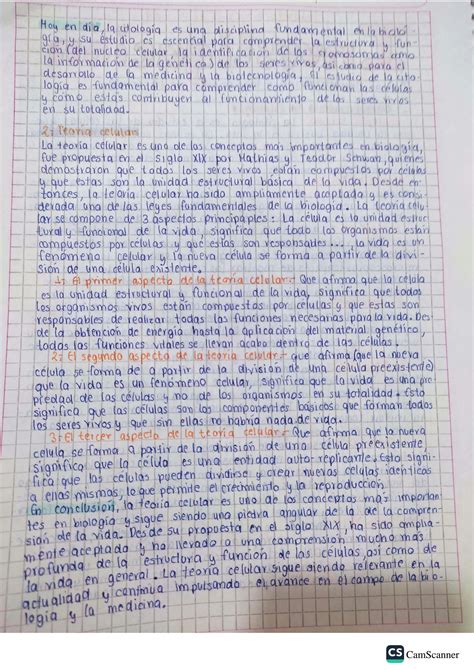 Hoy en día, la citología es una disciplina fundamental en la biolo-
gía, y su estudio es esencial para comprender la estructura y fun-
ción del núcleo celular, la identificación de los cromosomas como
la información de la genética) de los seres vivos, así como para el
desarrollo de la medicina y la biotecnología, El estudio de la cito-
logía es fundamental para comprender como funcionan las células
y cómo estás contribuyen al funcionamiento de los seres vivos
en su totalidad.
2: Teoría celular
La teoría celular es uno de los conceptos más importantes en biología,
fue propuesta en el siglo XIX por Mathias y Teodor Schwan, quienes
demostraron que todos los seres vivos están compuestos por células
y que estas son la unidad estructural básica de la vida. Desde en-
tonces, la teoría celular ha sido ampliamente aceptada y es consi-
derada una de las leyes fundamentales de la biología. La teoría celu-
lar se compone de 3 aspectos principales: La célula es la unidad estruc
tural y funcional de la vida, significa que todo los organismos están
compuestos por células y que estas son responsables... la vida es un
fenómeno celular y la nueva célula se forma a partir de la divi-
sión de una célula existente.
1: El primer aspecto de la teoría celular:- Que afirma que la célula
es la unidad estructural y funcional de la vida, significa que todos
los organismos vivos están compuestas por células y que estas son
responsables de realizar todas las funciones necesarias para la vida. Des-
de la obtención de energía hasta la aplicación del material genético,
todas las funciones vitales se llevan acabo dentro de las células.
2: El segundo aspecto de la teoría celular:- que afirma (que la nueva
célula se forma de a partir de la división de una célula preexistente)
que la vida es un fenómeno celular, significa que la vida es una pro-
piedad de las células y no de los organismos en su totalidad. Esto
significa que las células son los componentes básicos que forman todos
los seres vivos y que sin ellas no habría nada de vida.
3: El tercer aspecto de la teoría celular:- Que afirma que la nueva
célula se forma a partir de la división de una célula preexistente,
significa que la célula es una entidad auto-replicante. Esto signi-
fica que las células pueden dividirse y crear nuevas células idénticas
a ellas mismas, lo que permite el crecimiento y la reproducción.
En conclusión, la teoría celular es uno de los conceptos más importan-
tes en biología y sigue siendo una piedra angular de la de la compren-
sión de la vida. Desde su propuesta en el siglo XIX, ha sido amplia-
mente aceptada y ha llevado a una comprensión mucho más
profunda de la estructura y función de las células, así como de
la vida en general. La teoría celular sigue siendo relevante en la
actualidad y continúa impulsando el avance en el campo de la bio-
logía y la medicina.
CS CamScanner